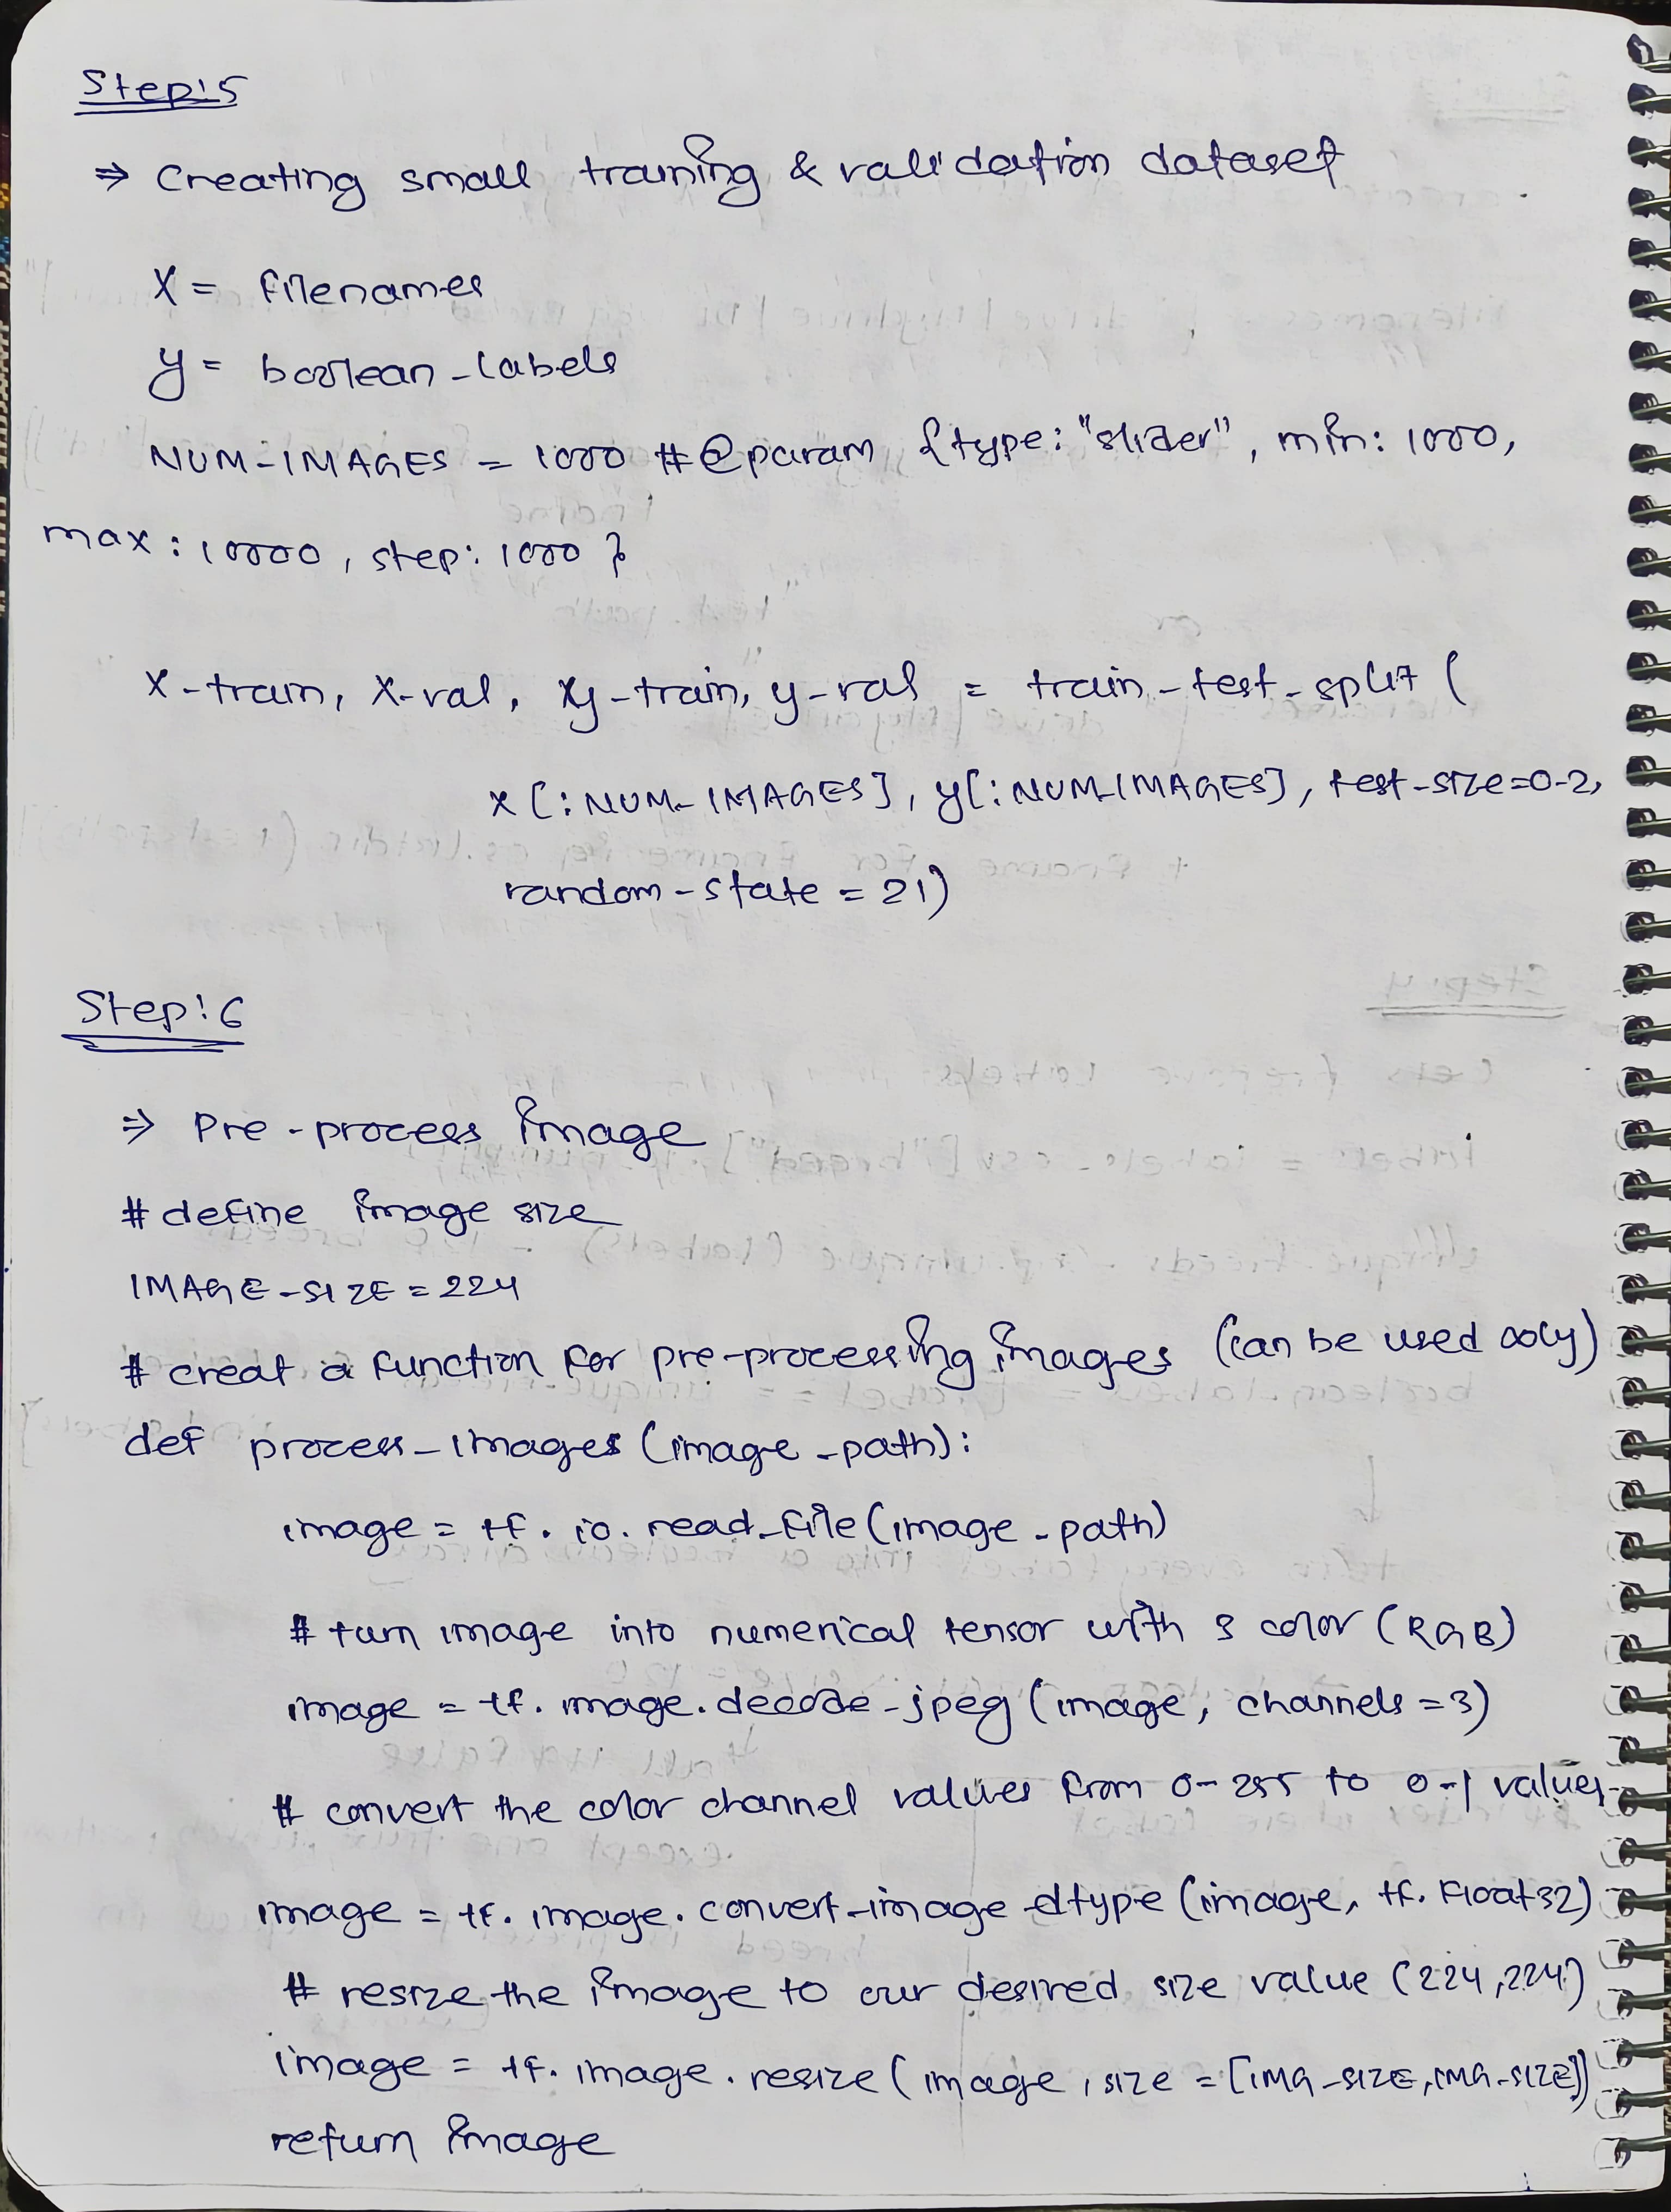 Step:5
⇒ Creating small training & validation dataset
X = filenames
y = boolean_labels
NUM-IMAGES = 1000 #@param {type: "slider", min: 1000,
max: 10000, step: 1000}
X-train, X-val, y-train, y-val = train-test-split (
X[:NUM-IMAGES], y[:NUM-IMAGES], test-size=0.2,
random-state = 21)
Step:6
⇒ Pre-process image
# define image size
IMAGE-SIZE = 224
# creat a function for pre-processing images (can be used)
def process-images (image-path):
image = tf.io.read_file(image-path)
# turn image into numerical tensor with 3 color (RGB)
image = tf.image.decode-jpeg (image, channels = 3)
# convert the color channel values from 0-255 to 0-1 values
image = tf.image.convert-image-dtype (image, tf.float32)
# resize the image to our desired size value (224,224)
image = tf.image.resize (image, size = [IMG-SIZE, IMG-SIZE])
return image